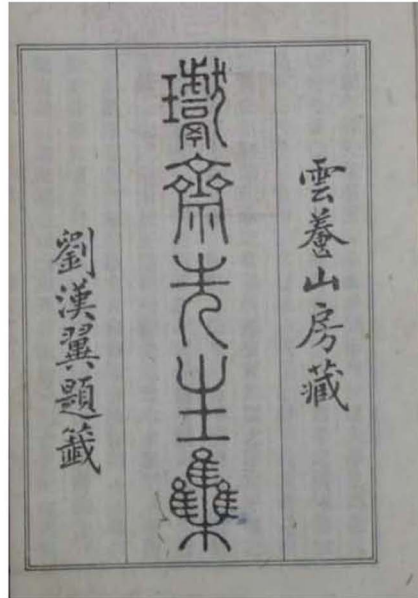 雲養山房藏
瓛齋先生集
劉漢翼題籤